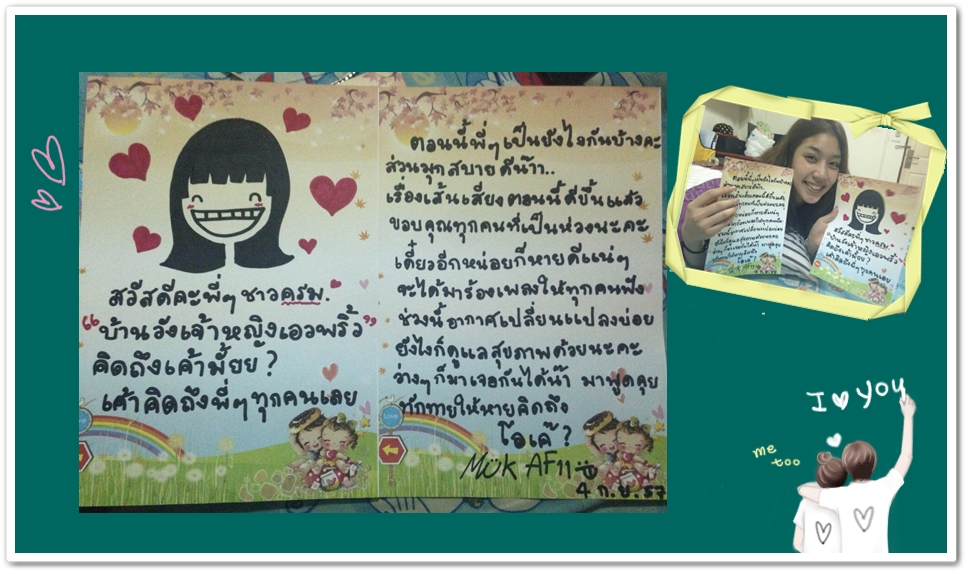 สวีสดีคะพี่ๆ ชาวครม.
“บ้านวังเจ้าหญิงเอวพริ้ว”
คิดถึงเค้ามั้ยย?
เค้าคิดถึงพี่ๆ ทุกคนเลย
ตอนนี้พี่ๆ เป็นยังไงกันบ้างคะ
ส่วนมุกสบายดีน๊าา..
เรื่องเส้นเสียงตอนนี้ดีขึ้นแล้ว
ขอบคุณทุกคนที่เป็นห่วงนะคะ
เดี๋ยวอีกหน่อยก็หายดีแน่ๆ
จะได้มาร้องเพลงให้ทุกคนฟัง
ช่วงนี้อากาศเปลี่ยนแปลงบ่อย
ยังไงก็ดูแลสุขภาพด้วยนะคะ
ว่างๆ ก็มาเจอกันได้น๊า มาพูดคุย
ทักทายให้หายคิดถึง
โอเค๊?
MUK AF11
4 ก.ย. 57
I YOU
me
too